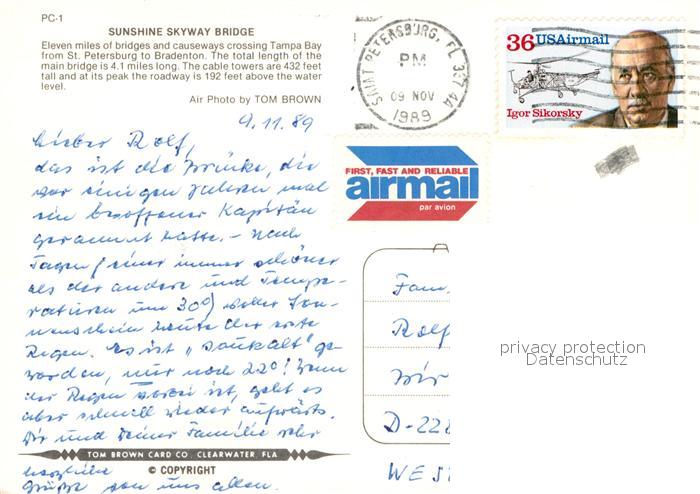 PC-1
SUNSHINE SKYWAY BRIDGE
Eleven miles of bridges and causeways crossing Tampa Bay
from St. Petersburg to Bradenton. The total length of the
main bridge is 4.1 miles long. The cable towers are 432 feet
tall and at its peak the roadway is 192 feet above the water
level.
Air Photo by TOM BROWN
SAINT PETERSBURG, FL 337 4A
PM
09 NOV
1989
36 USAirmail
Igor Sikorsky
FIRST, FAST AND RELIABLE
airmail
par avion
9.11.89
Lieber Rolf,
das ist die Brücke, die
vor einigen Jahren mal
ein besoffener Kapitän
gerammt hatte. – Nach
Tagen (einer immer schöner
als der andere und Tempe-
raturen um 30°) voller Son-
nenschein heute der erste
Regen. Es ist "saukalt" ge-
worden, nur noch 22°! Wenn
der Regen vorbei ist, geht es
aber schnell wieder aufwärts.
Dir und Deiner Familie sehr
herzliche
Grüße von uns allen.
TOM BROWN CARD CO. CLEARWATER, FLA
© COPYRIGHT
Fam.
Rolf
D-228
WEST
privacy protection
Datenschutz